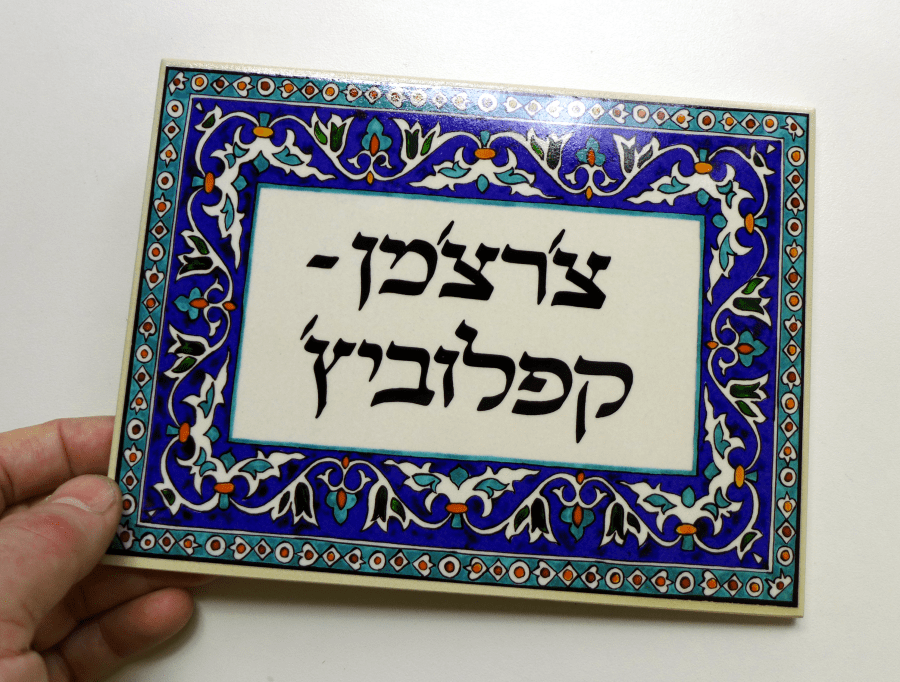 צ'רצ'מן -
קפלוביץ'